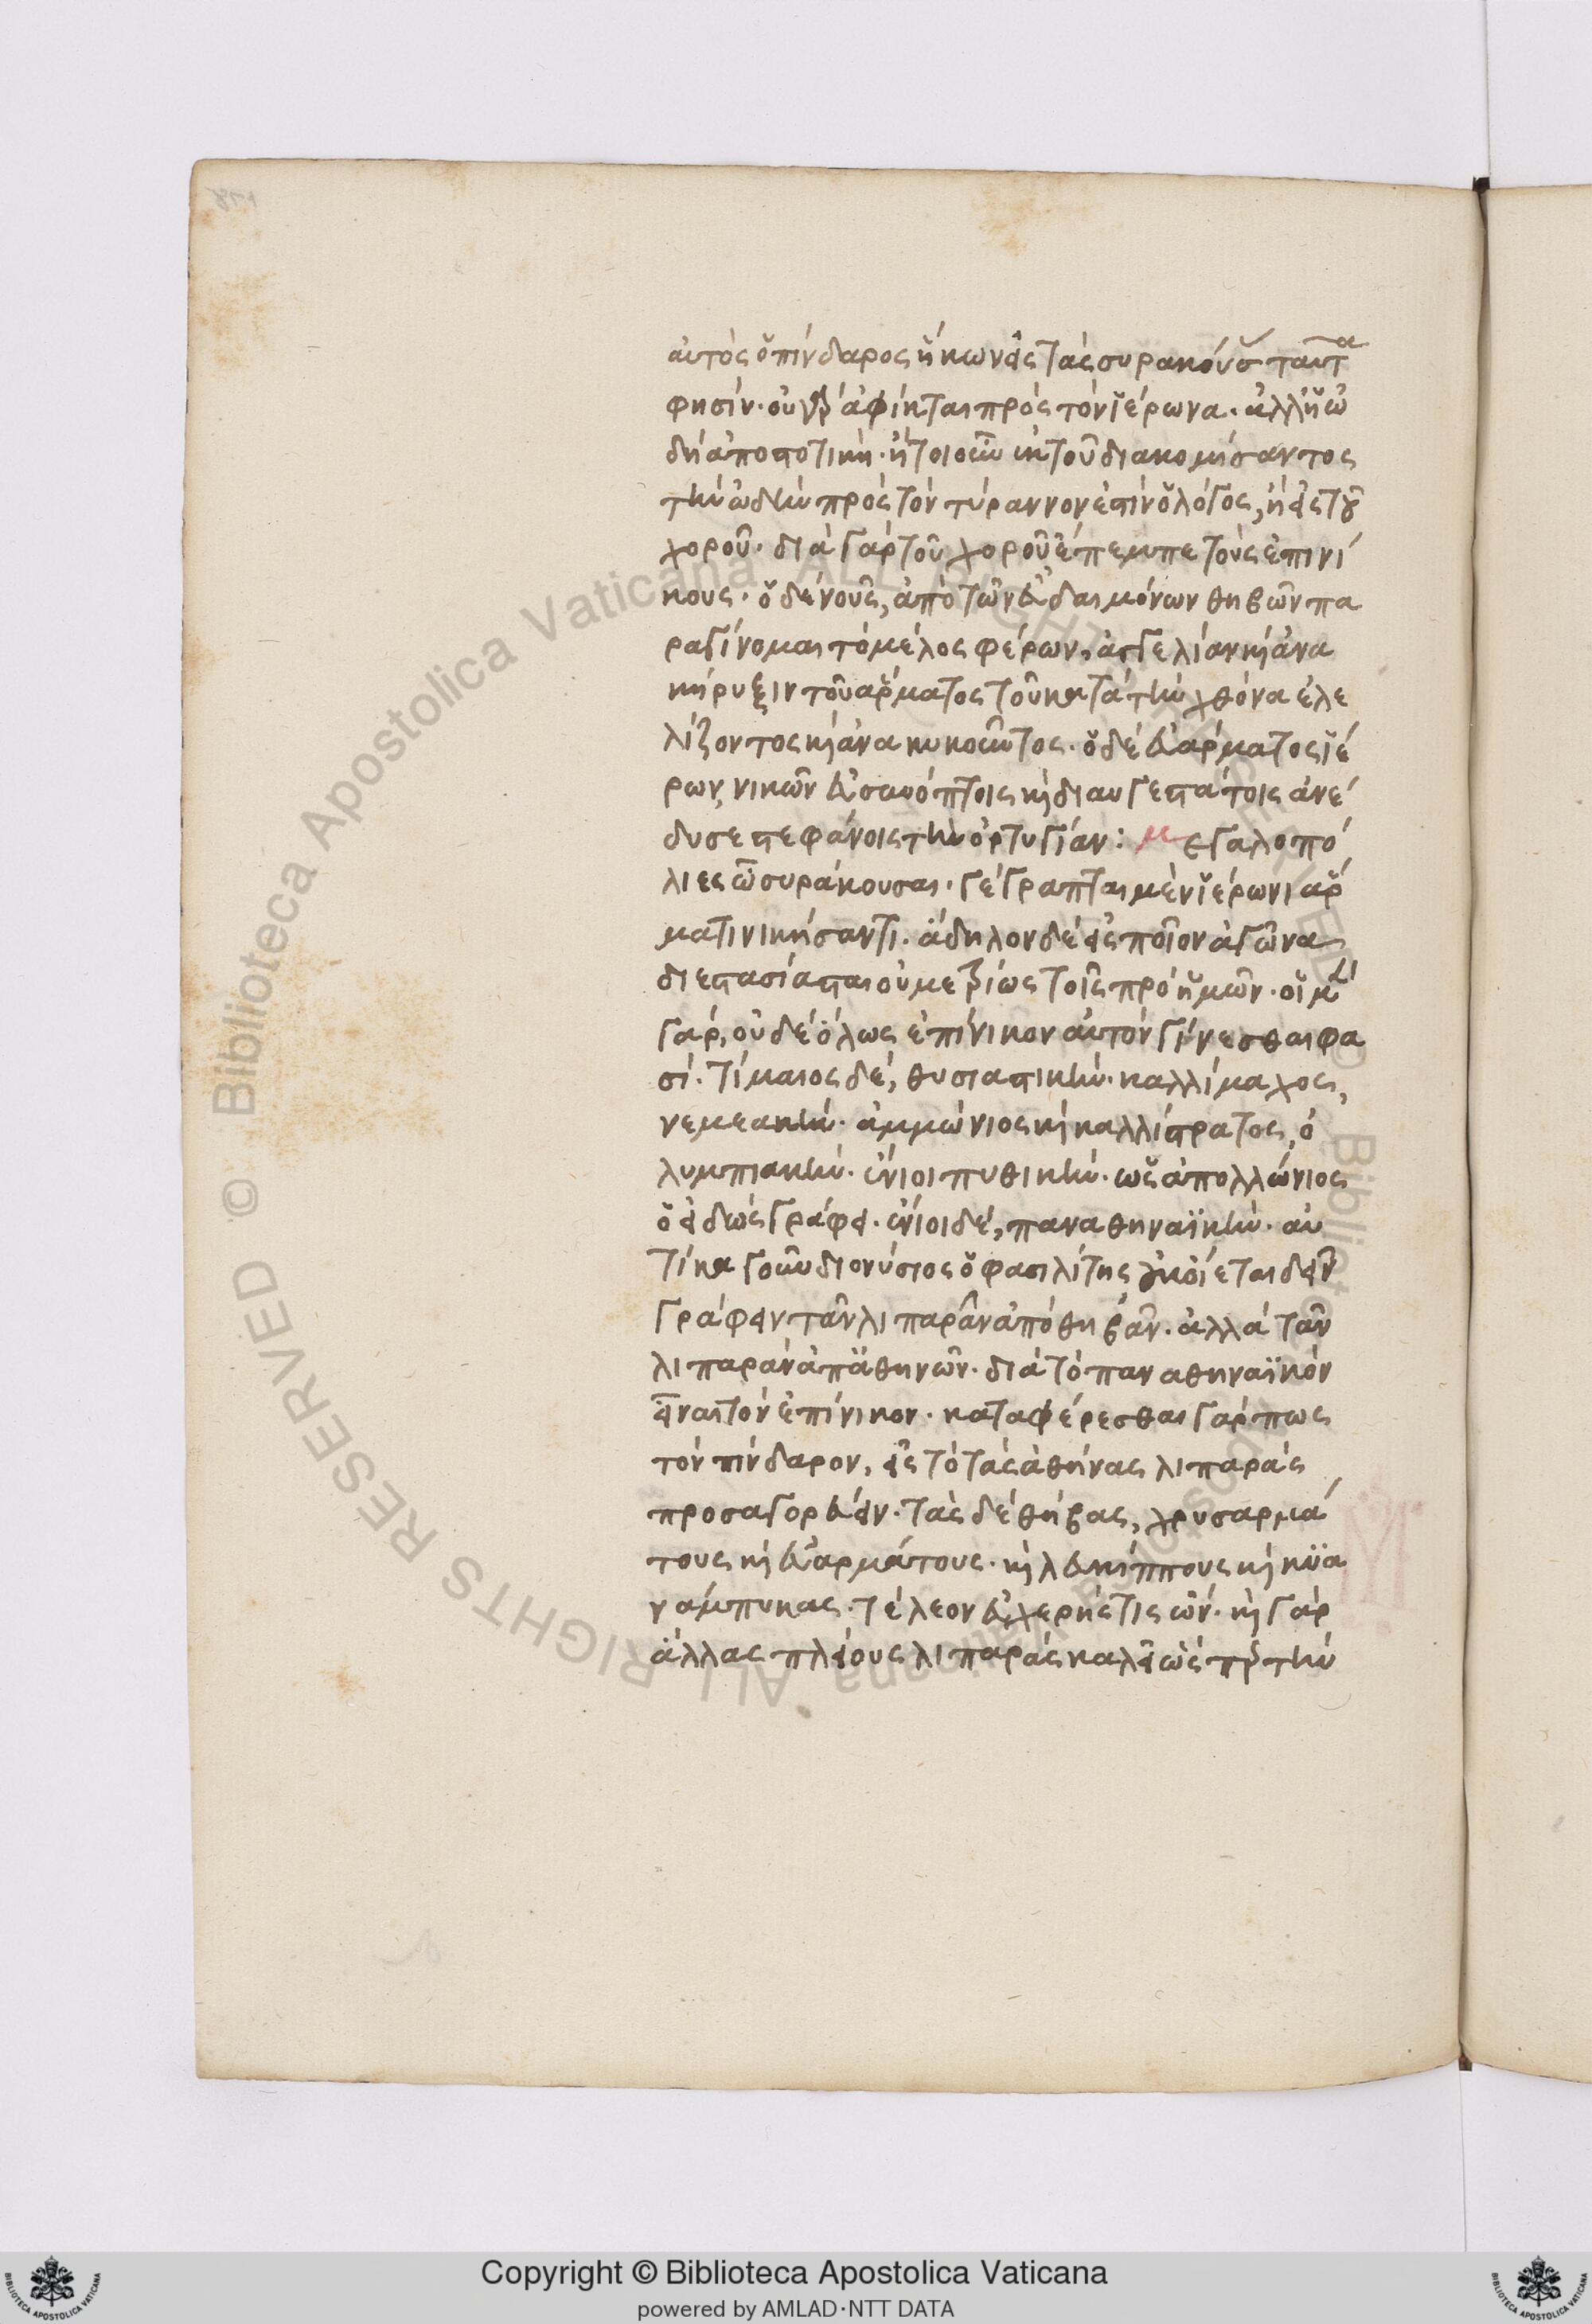 αὐτὸς ὁ πίνδαρος ἥκων εἰς τὰς συρακούσ ταῦτα
φησίν· οὐ γὰρ ἀφίκται πρὸς τὸν ἱέρωνα. ἀλλ' ἡ ᾠ
δὴ ἀποστοτικὴ· ἤτοι οὖν ἐκ τοῦ διακομήσαντος
τὴν ᾠδὴν πρὸς τὸν τύραννον ἐστὶν ὁ λόγος, ἢ εἰς τοῦ
χοροῦ· διὰ γὰρ τοῦ χοροῦ ἔπεμπε τοὺς ἐπινί
κους· ὁ δὲ νοῦς, ἀπὸ τῶν εὐδαιμόνων θηβῶν πα
ραγίνομαι τὸ μέλος φέρων, ἀγγελίαν καὶ ἀνα
κήρυξιν τοῦ ἅρματος τοῦ κατὰ τὴν χθόνα ἐλε
λίζοντος καὶ ἀνακυκοῦντος. ὁ δὲ εὐάρματος ἱέ
ρων, νικῶν εὐσυνόπτοις καὶ διαυγεστάτοις ἀνέ
δυσε στεφάνοις τὴν ὀρτυγίαν: μεγαλοπό
λιες ὦ συράκουσαι. γέγραπται μὲν ἱέρωνι ἅρ
ματι νικήσαντι. ἄδηλον δὲ εἰς ποῖον ἀγῶνα
διεστασίασται οὐ μετρίως τοῖς πρὸ ἡμῶν· οἱ μὲν
γὰρ, οὐδὲ ὅλως ἐπίνικον αὐτὸν γίνεσθαι φα
σί. τίμαιος δὲ, θυσιαστικήν· καλλίμαχος,
νεμεακήν· ἀμμώνιος καὶ καλλίστρατος, ὀ
λυμπιακήν· ἔνιοι πυθικήν· ὡς ἀπολλώνιος
ὁ εἰδωγράφος. ἔνιοι δὲ, παναθηναϊκήν· αὐ
τίκα γοῦν διονύσιος ὁ φασιλίτης οὐκ οἴεται δεῖν
γράφειν τᾶν λιπαρᾶν ἀπὸ θηβᾶν. ἀλλὰ τᾶν
λιπαρὰν ἀπ' ἀθηνῶν. διὰ τὸ παναθηναϊκὸν
εἶναι τὸν ἐπίνικον. καταφέρεσθαι γάρ πως
τὸν πίνδαρον, εἰς τὸ τὰς ἀθήνας λιπαρὰς
προσαγορεύειν. τὰς δὲ θήβας, χρυσαρμά
τους καὶ εὐαρμάτους. καὶ λευκίππους καὶ κυα
ναμπυκας. τέλεον εὐχερής τις ὤν. καὶ γὰρ
ἄλλας πλείους λιπαρὰς καλεῖ ὡς πρ τὴν